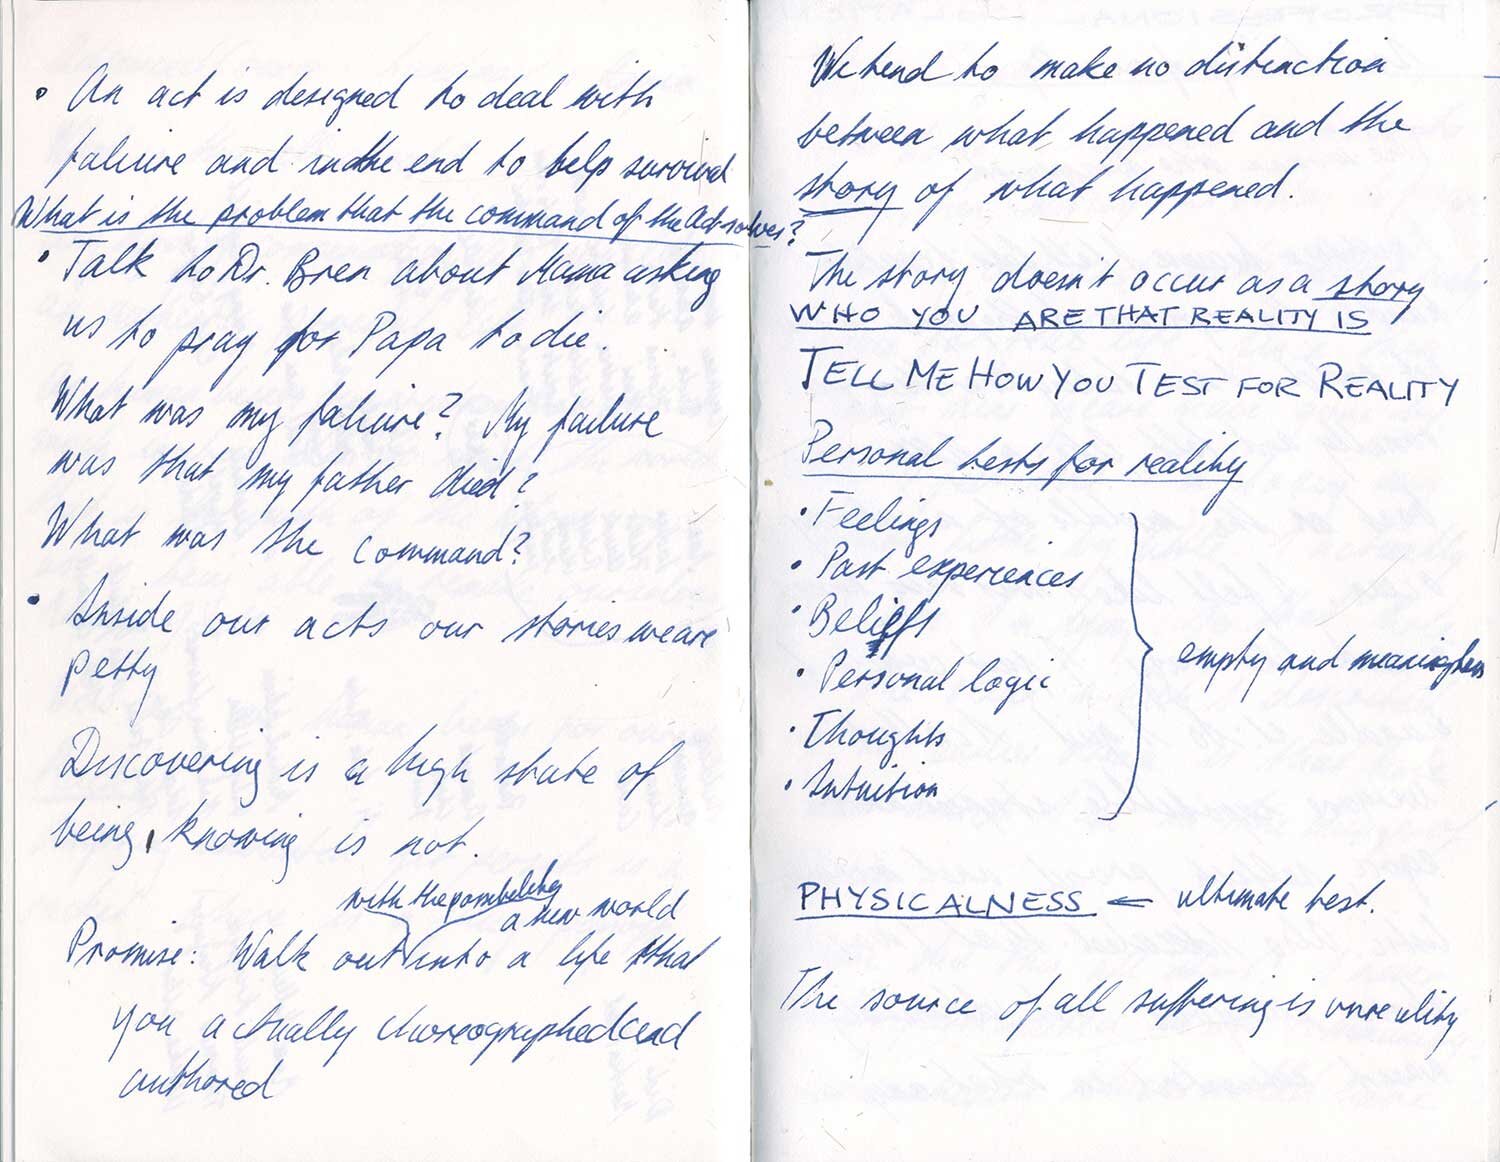 • An act is designed to deal with
faliure and in the end to help survival
What is the problem that the command of the Act solves?
• Talk to Dr. Bren about Mama asking
us to pray for Papa to die.
What was my faliure? My failure
was that my father died?
What was the command?
• Inside our acts our stories we are
petty
Discovering is a high state of
being, knowing is not.
with the possibilities
a new world
Promise: Walk out into a life that
you actually choreographed and
authored
We tend to make no distinction
between what happened and the
story of what happened.
The story doesn't occur as a story
WHO YOU ARE THAT REALITY IS
TELL ME HOW YOU TEST FOR REALITY
Personal tests for reality
• Feelings
• Past experiences
• Beliefs
• Personal logic
• Thoughts
• Intuition
empty and meaningless
PHYSICALNESS ← ultimate test.
The source of all suffering is unreality